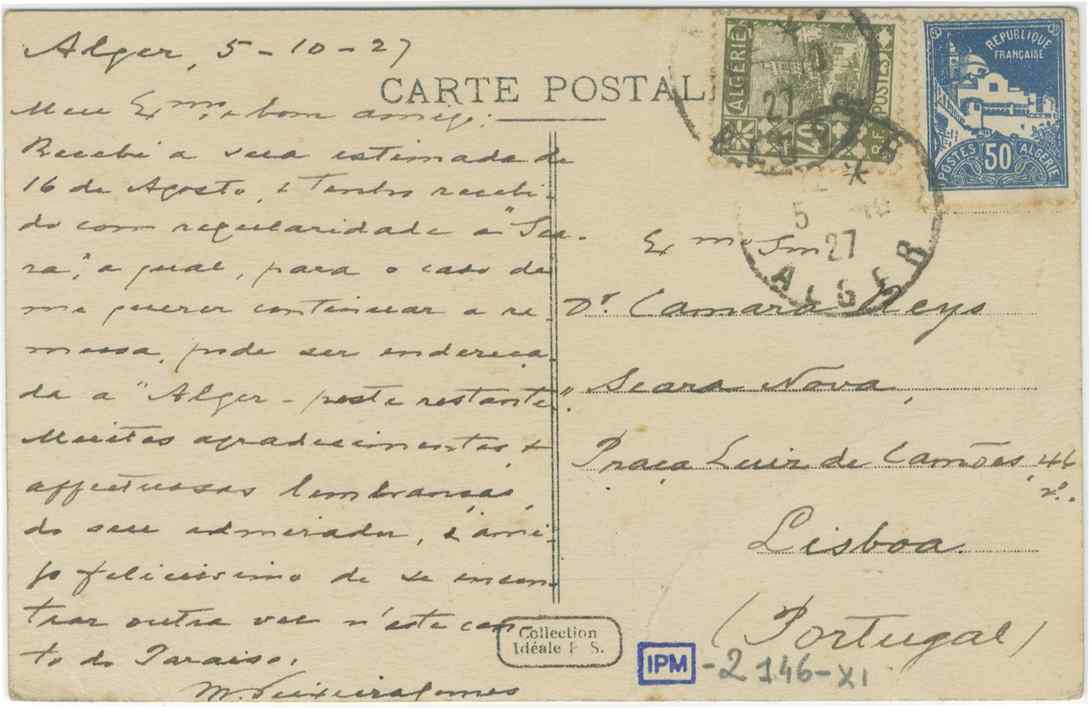 Alger, 5-10-27
CARTE POSTALE
Meu Exmo e bom amigo:
Recebi a sua estimada de
16 de Agosto, e tenho recebi-
do com regularidade a "Sea-
ra", a qual, para o caso de
me querer continuar a re-
messa, pode ser endereça-
da a "Alger - poste restante".
Muitos agradecimentos e
affectuosas lembranças
do seu admirador, e ami-
go felicissimo de se encon-
trar outra vez n'este can-
to do Paraiso.
M. Teixeira Gomes
ALGÉRIE
POSTES
RF
RÉPUBLIQUE
FRANÇAISE
50
POSTES ALGÉRIE
27
5
27
ALGER
Exmo Snr
Dr. Camara Reys
Seara Nova,
Praça Luiz de Camões, 46
2º.
Lisboa.
(Portugal)
Collection
Idéale P. S.
IPM -2146-XI